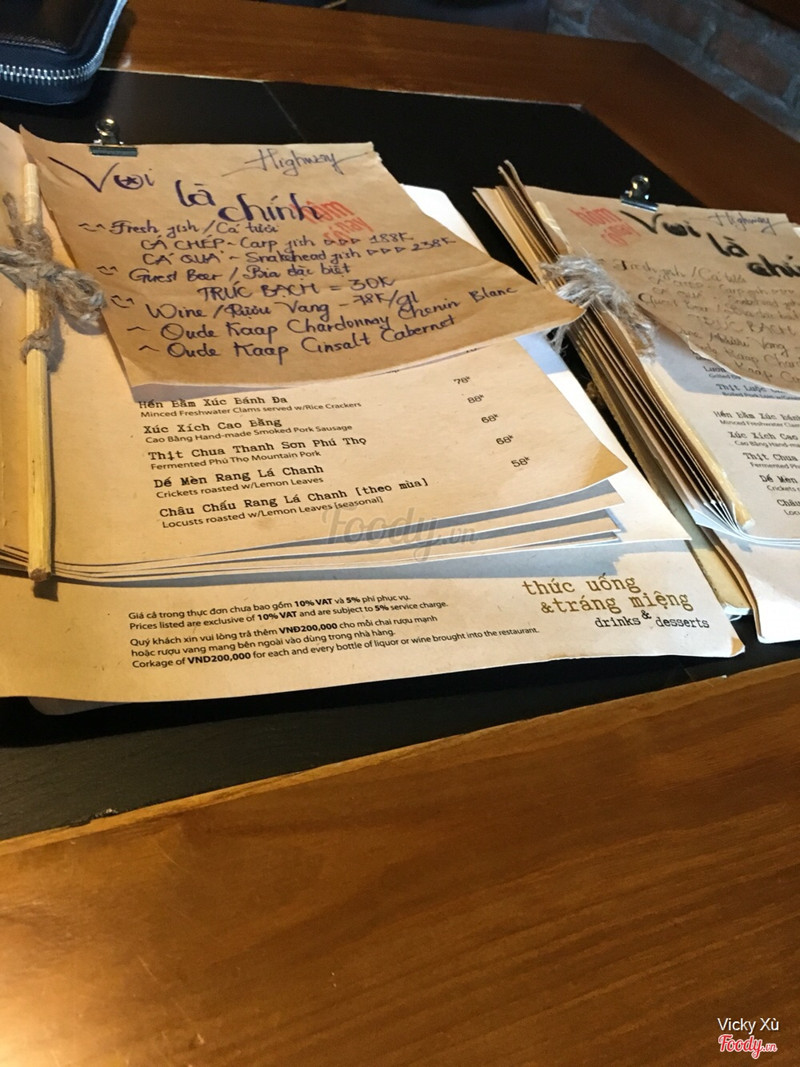 Highway
Vui
là chính
hôm nay
Fresh fish / Cá tươi
CÁ CHÉP ~ Carp fish ▷▷▷ 188K
CÁ QUẢ ~ Snakehead fish ▷▷▷ 238K
Guest Beer / Bia đặc biệt
TRÚC BẠCH = 30K
Wine / Rượu Vang - 78K/gl
~ Oude Kaap Chardonnay Chenin Blanc
~ Oude Kaap Cinsalt Cabernet
78k
Hến Bằm Xúc Bánh Đa 88k
Minced Freshwater Clams served w/Rice Crackers
Xúc Xích Cao Bằng 68k
Cao Bằng Hand-made Smoked Pork Sausage
Thịt Chua Thanh Sơn Phú Thọ 68k
Fermented Phú Thọ Mountain Pork
Dế Mèn Rang Lá Chanh 58k
Crickets roasted w/Lemon Leaves
Châu Chấu Rang Lá Chanh [theo mùa]
Locusts roasted w/Lemon Leaves [seasonal]
Foody.vn
Giá cả trong thực đơn chưa bao gồm 10% VAT và 5% phí phục vụ.
Prices listed are exclusive of 10% VAT and are subject to 5% service charge.
Quý khách xin vui lòng trả thêm VNĐ200,000 cho mỗi chai rượu mạnh
hoặc rượu vang mang bên ngoài vào dùng trong nhà hàng.
Corkage of VND200,000 for each and every bottle of liquor or wine brought into the restaurant.
thức uống
&tráng miệng
drinks & desserts
hôm nay
Highway
Vui
là
Fresh fish / Cá tươi
Thịt Luộc
Hến Bằm Xúc Bánh
Minced Freshwater
Xúc Xích Cao
Cao Bằng Hand
Thịt Chua
Fermented Ph
Dế Mèn
Crickets r
Châu
Locus
Vicky Xù
Foody.vn